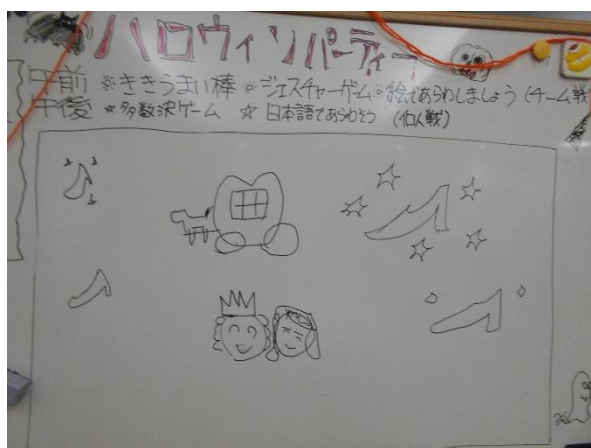 ハロウィンパーティー
午前 ※ききうまい棒 ※ジェスチャーゲーム ※絵であらわしましょう (チーム戦)
午後 ☆多数決ゲーム ☆日本語であらわそう (個人戦)